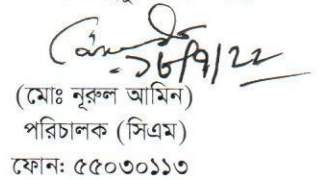 ১৮/৭/২২
(মোঃ নূরুল আমিন)
পরিচালক (সিএম)
ফোন: ৫৫০৩০১১৩